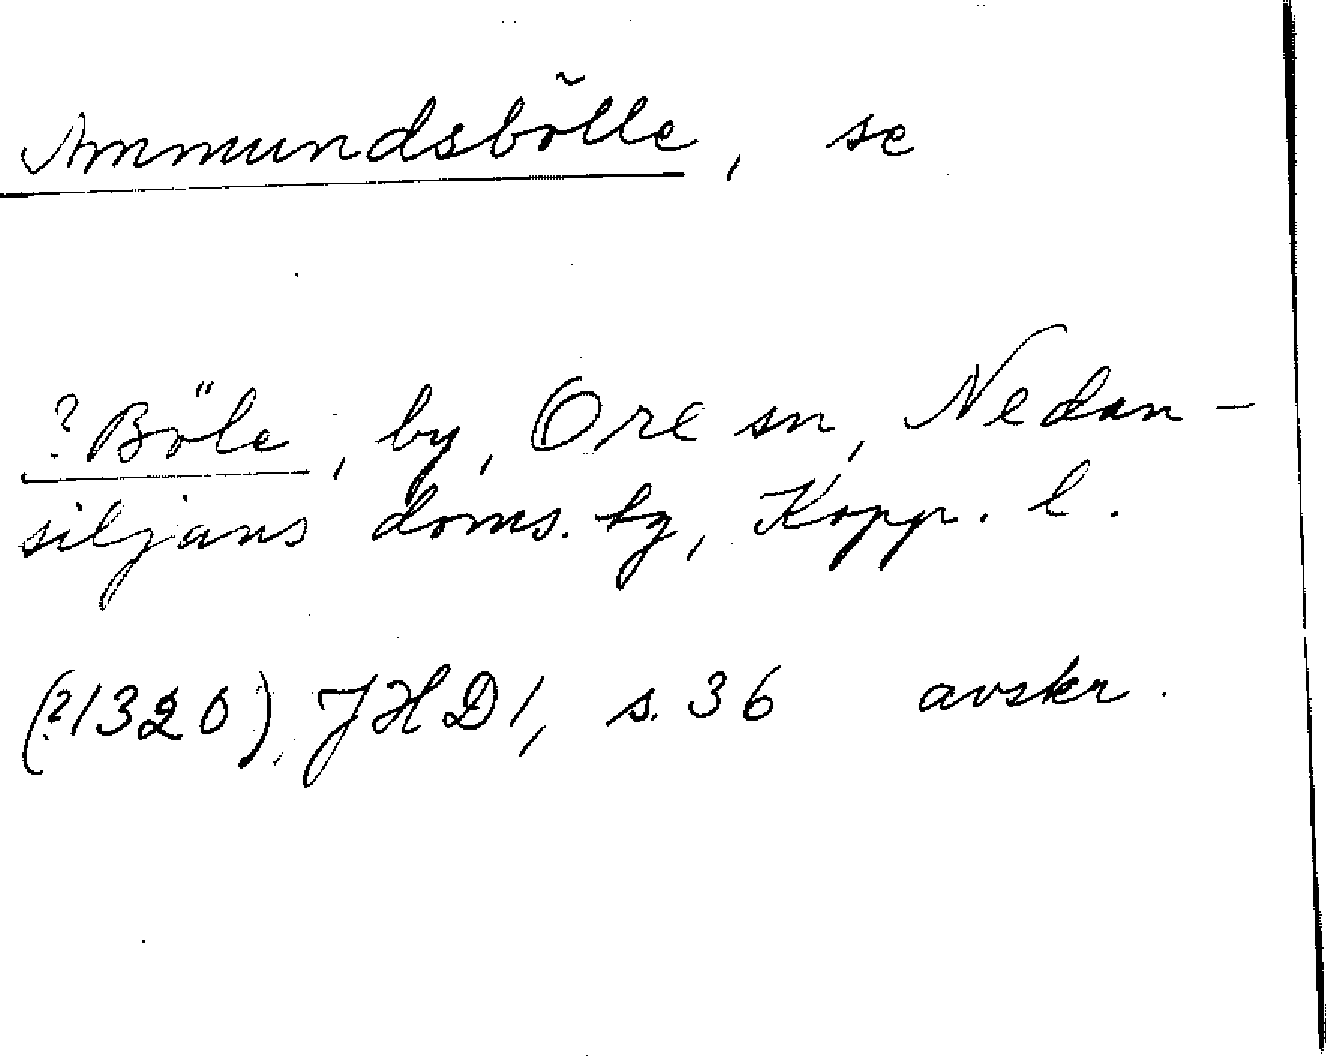 Ammundsbölle, se
?Böle, by, Ore sn, Nedan-
siljans doms. tg, Kopp. l.
(?1320), JHD1, s. 36 avskr.